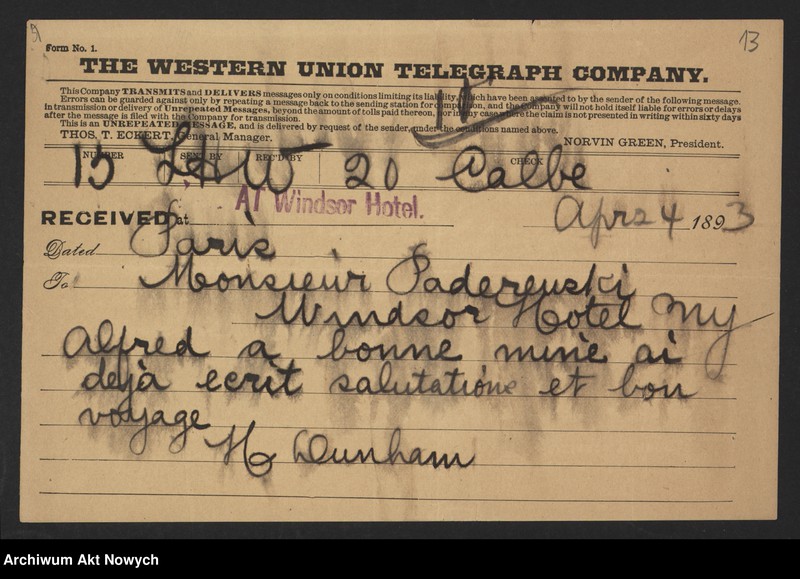 13
Form No. 1.
THE WESTERN UNION TELEGRAPH COMPANY.
This Company TRANSMITS and DELIVERS messages only on conditions limiting its liability, which have been assented to by the sender of the following message.
Errors can be guarded against only by repeating a message back to the sending station for comparison, and the Company will not hold itself liable for errors or delays
in transmission or delivery of Unrepeated Messages, beyond the amount of tolls paid thereon, nor in any case where the claim is not presented in writing within sixty days
after the message is filed with the Company for transmission.
This is an UNREPEATED MESSAGE, and is delivered by request of the sender, under the conditions named above.
THOS. T. ECKERT, General Manager. NORVIN GREEN, President.
NUMBER SENT BY REC'D BY CHECK
15 LH W 20 Calbe
RECEIVED at AT Windsor Hotel. Apr 24 1893
Dated Paris
To Monsieur Paderewski
Windsor Hotel NY
Alfred a bonne mine ai
deja ecrit salutations et bon
voyage
H Dunham
Archiwum Akt Nowych